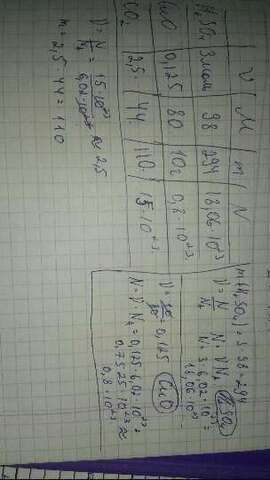 ν | M | m | N
H₂SO₄ | 3 моль | 98 | 294 | 18,06·10²³
CuO | 0,125 | 80 | 10г | 0,8·10²³
CO₂ | 2,5 | 44 | 110 | 15·10²³
ν = N/Nₐ = 15·10²³/6,02·10²³ ≈ 2,5
m = 2,5 · 44 = 110
m(H₂SO₄) = 3 · 98 = 294
ν = N/Nₐ N = νNₐ H₂SO₄
N = 3 · 6,02·10²³ =
18,06·10²³
ν = 10/80 = 0,125 CuO
N = ν·Nₐ = 0,125·6,02·10²³ =
0,7525·10²³ ≈
0,8·10²³